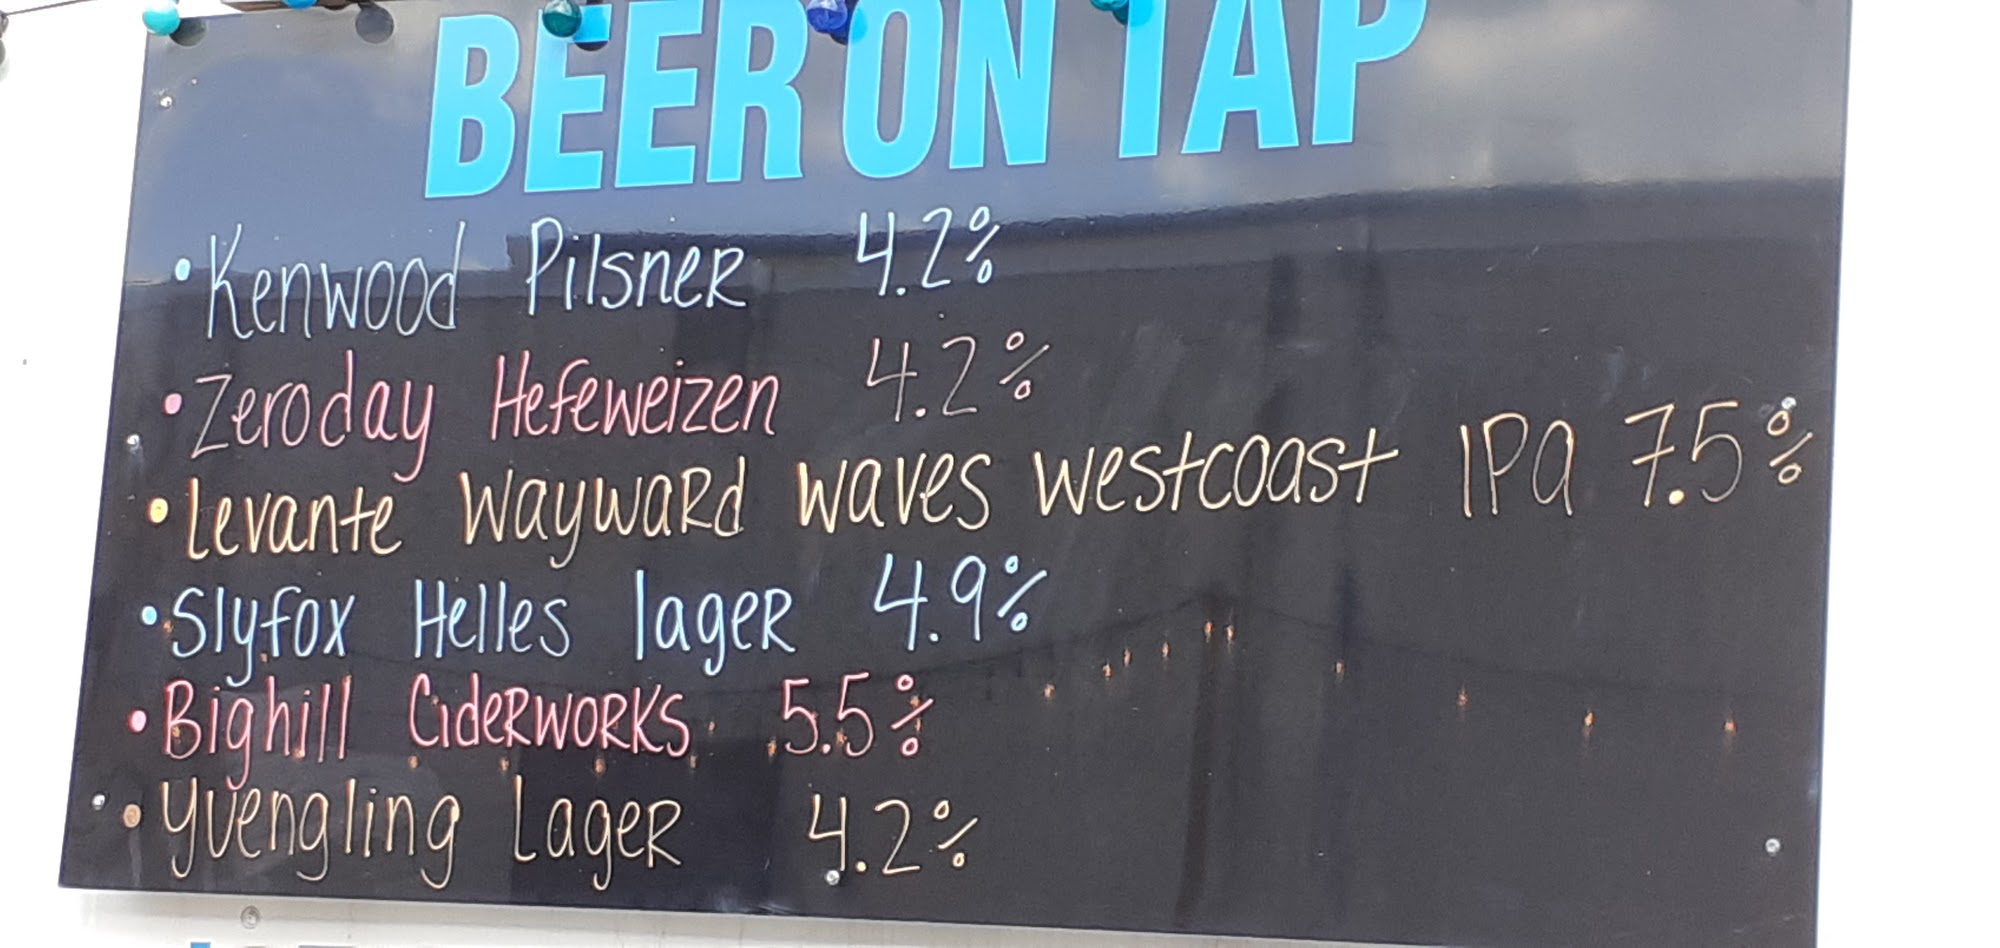 BEER ON TAP
• Kenwood Pilsner 4.2%
• Zeroday Hefeweizen 4.2%
• Levante Wayward waves westcoast IPA 7.5%
• Slyfox Helles lager 4.9%
• Bighill Ciderworks 5.5%
• Yuengling Lager 4.2%